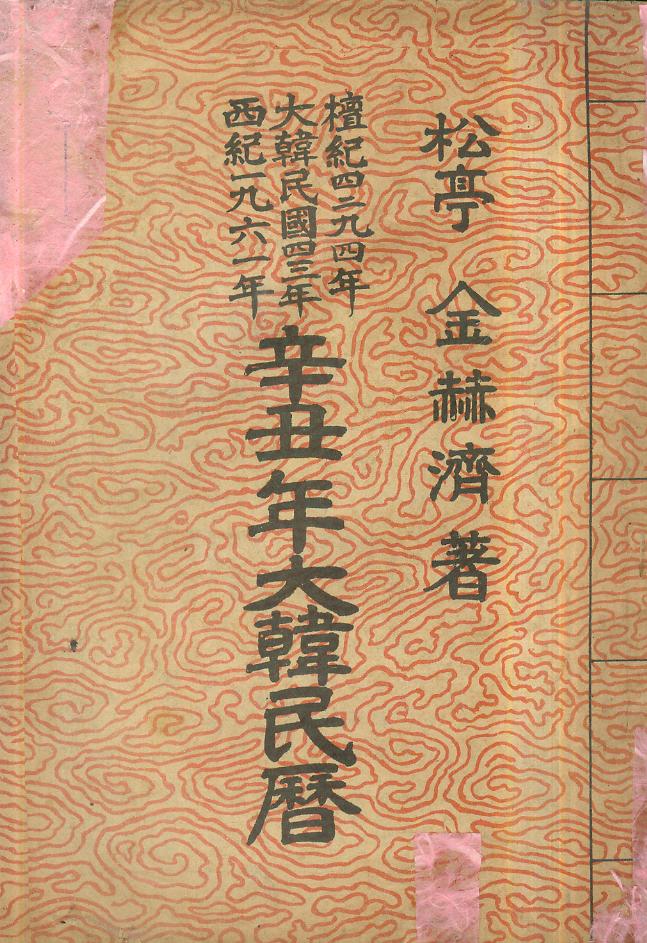 松亭 金赫濟 著
檀紀四二九四年
大韓民國四三年
西紀一九六一年
辛丑年大韓民曆